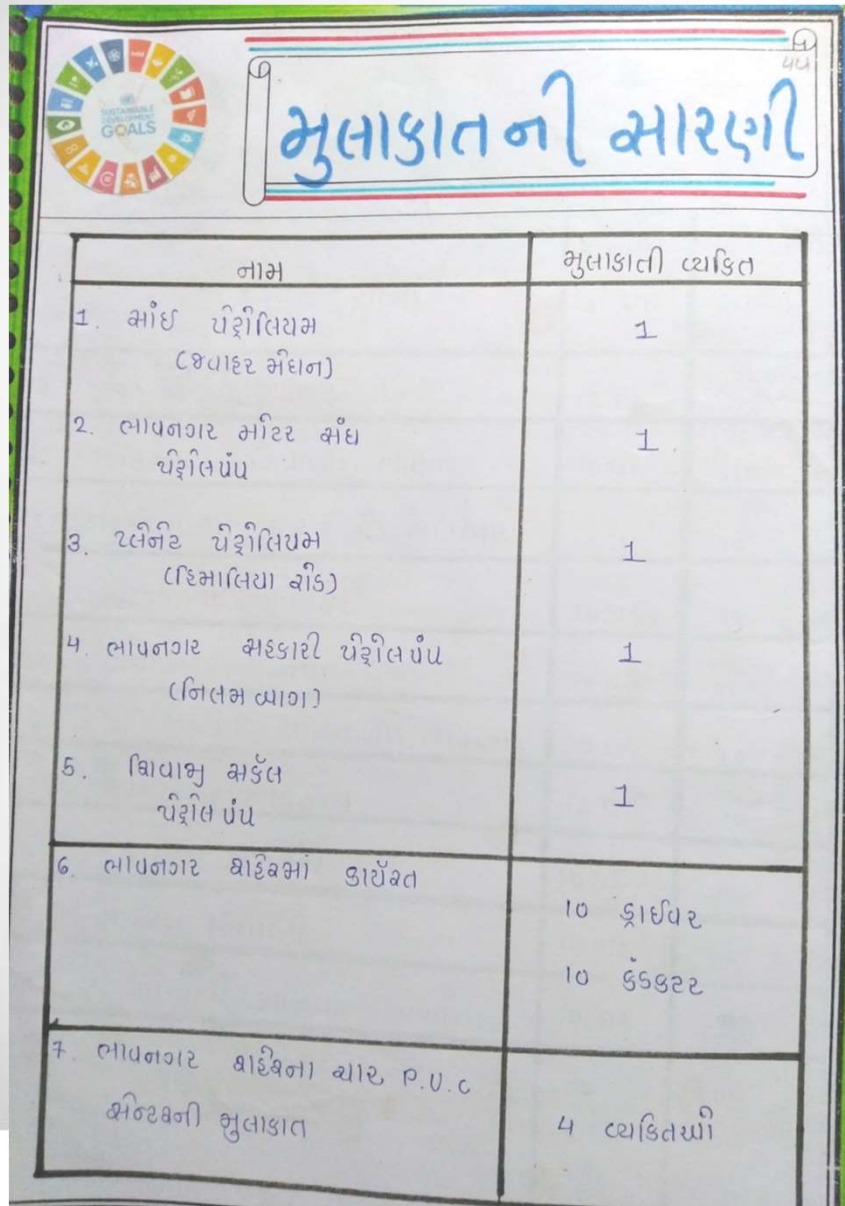 SUSTAINABLE
DEVELOPMENT
GOALS
મુલાકાતની સારણી
નામ
મુલાકાતી વ્યકિત
1. સાંઈ પેટ્રોલિયમ
1
(જવાહર મેદાન)
2. ભાવનગર મોટર સંઘ
1
પેટ્રોલપંપ
3. પ્લેનેટ પેટ્રોલિયમ
1
(હિમાલિયા રોડ)
4. ભાવનગર સહકારી પેટ્રોલપંપ
1
(નિલમ બાગ)
5. શિવાજી સર્કલ
1
પેટ્રોલ પંપ
6. ભાવનગર શહેરમાં કાર્યરત
10 ડ્રાઈવર
10 કંડકટર
7. ભાવનગર શહેરના ચાર P.U.C
સેન્ટરની મુલાકાત
4 વ્યકિતઓ